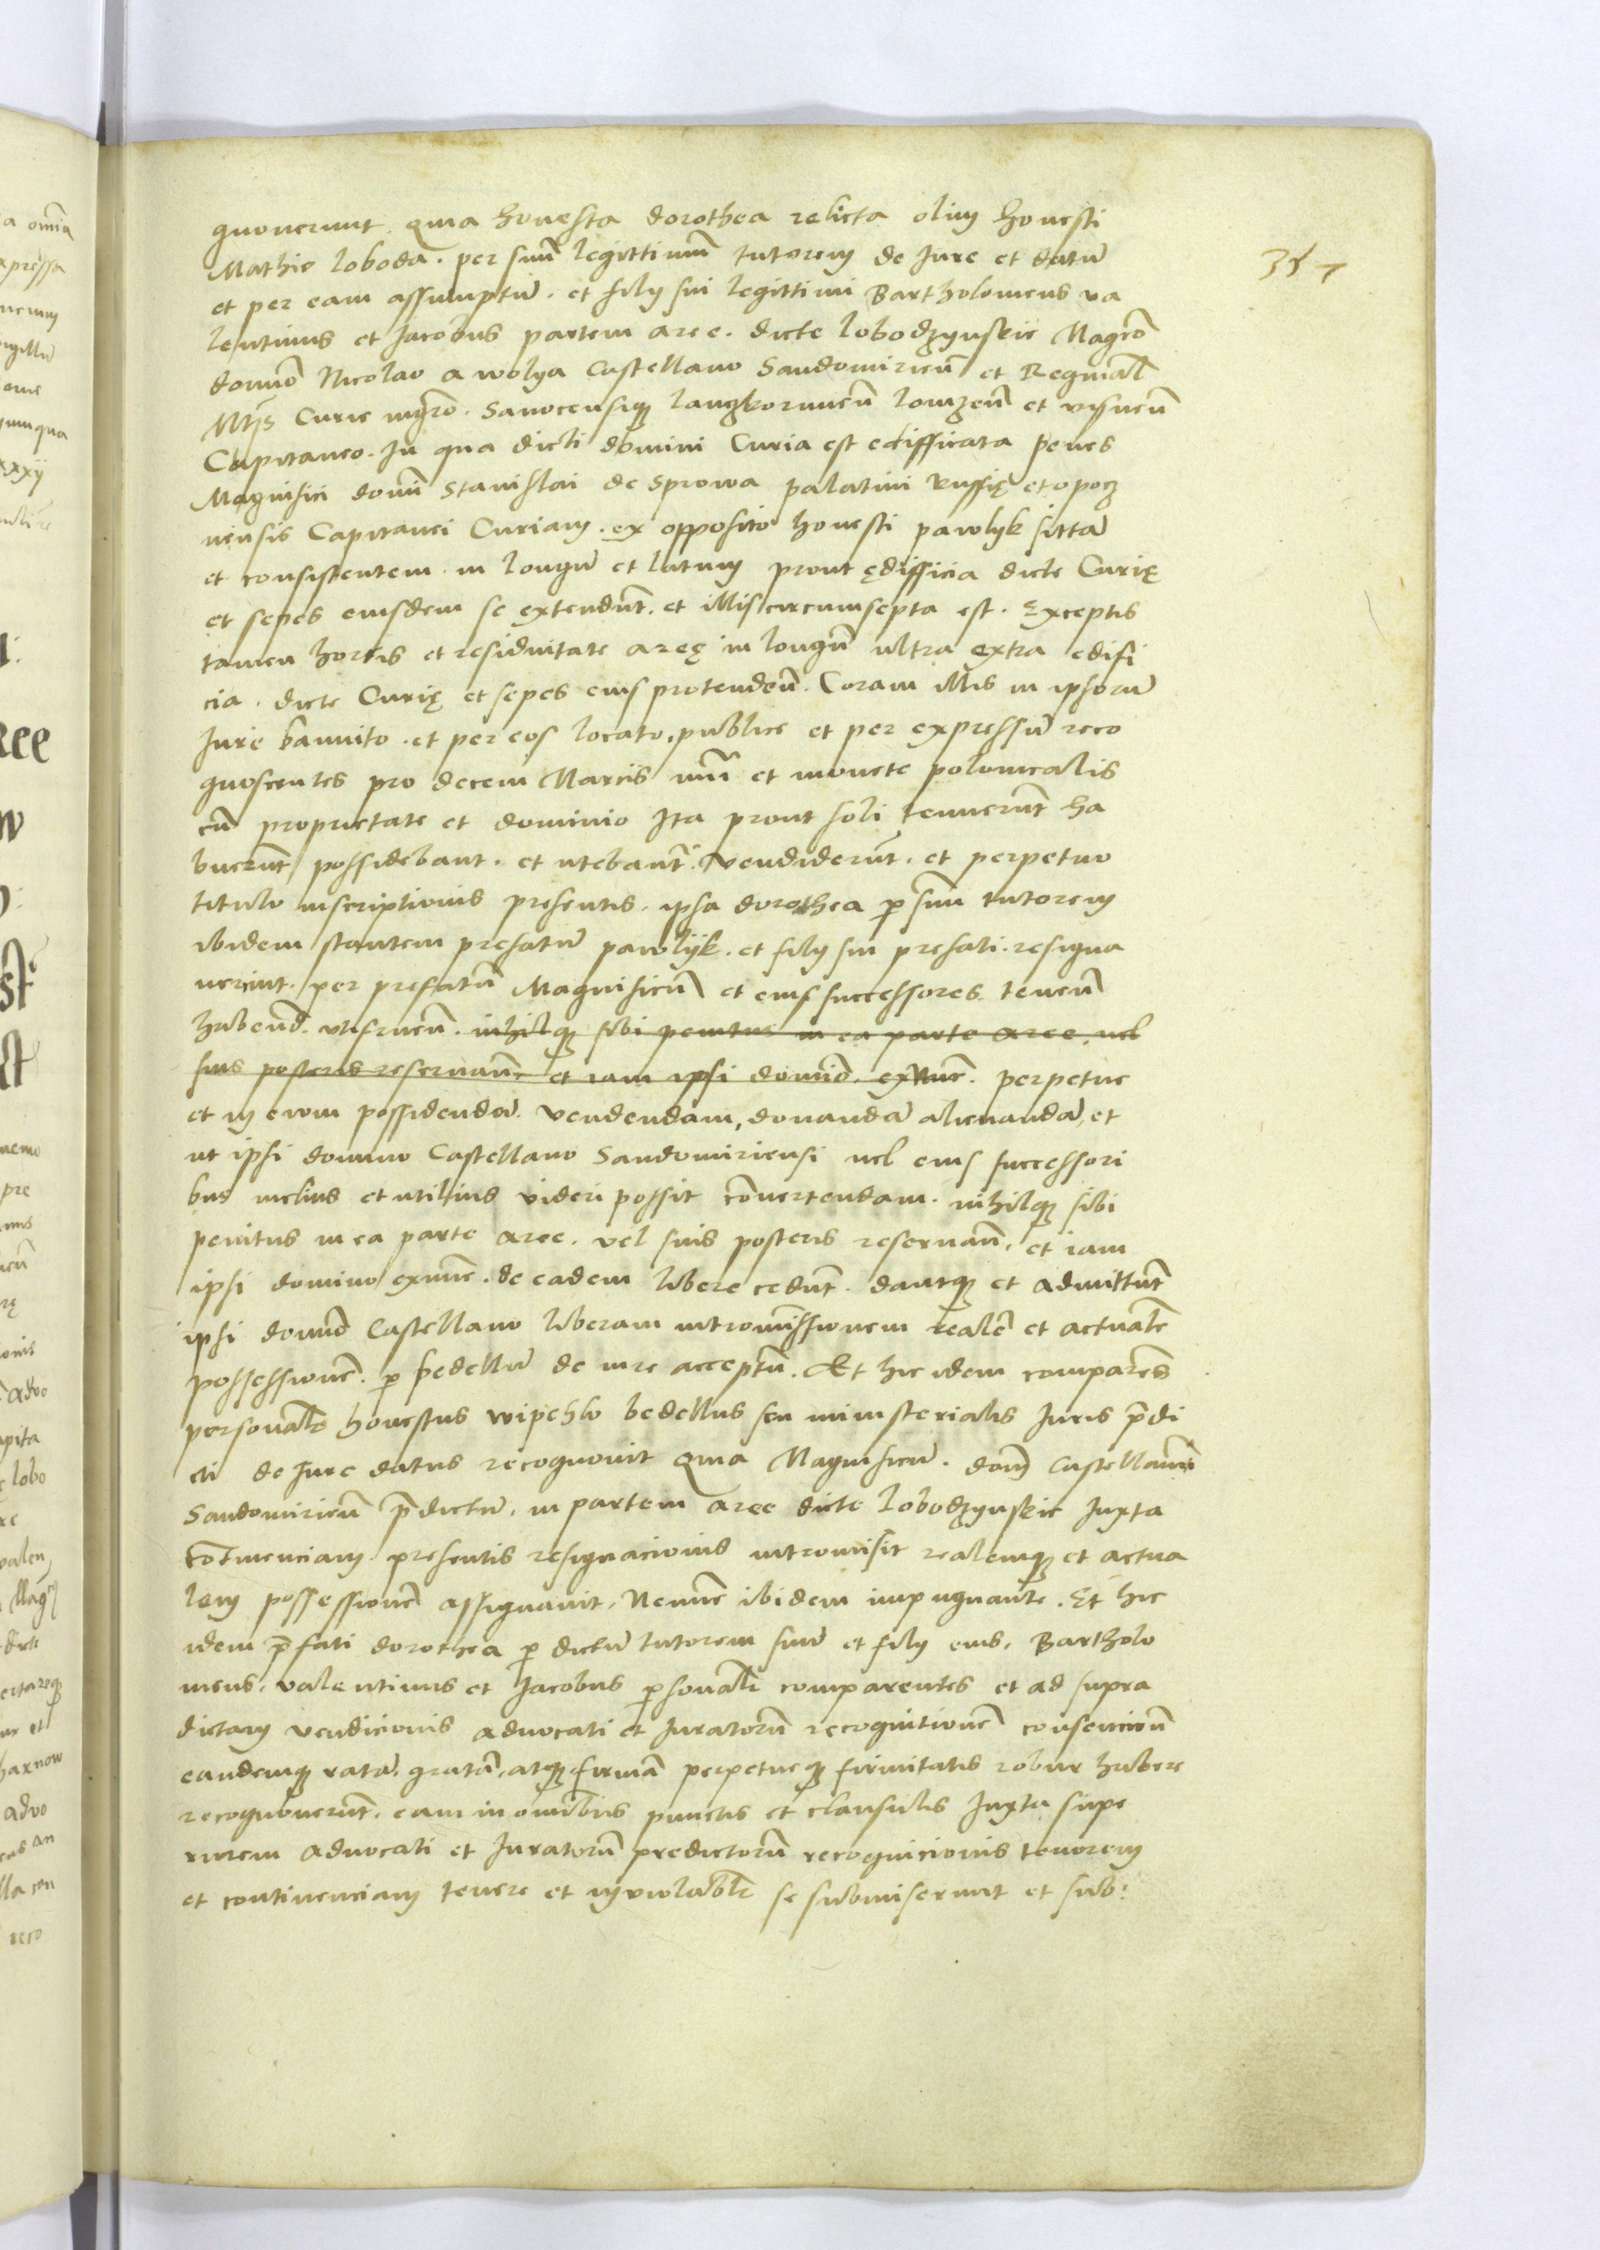 gnoverunt. Quia honesta dorothea relicta olim honesti
Mathie loboda. per suu̅ legittimu̅ tutorem de Iure et datu̅
et per eam assumptu̅. et filij sui legittimi Bartholomeus va
lentinus et Jacobus partem aree. dicte lobodzynskie Magco̅
domi̅o Nicolao a wolya Castellano Sandomirien̅ et Reginal̅
Mtis Curie mgro̅. Sanocensiq3 lanzkorunen̅ lomzen̅ et visnen̅
Capitaneo. In qua dicti domini Curia est edifficata penes
Magnifici domi̅ Stanislai de Sprowa palatini Russię et opocz
nensis Capitanei Curiam. ex opposito honesti pawlyk sitta̅
et consistentem in longu̅ et latum prout ędifficia dicte Curię
et sepes eiusdem se extendu̅t. et illis circumsepta est. Exceptis
tamen hortis et residuitate areę in longu̅ ultra extra edifi
cia. dicte Curię et sepes eius protenden̅. Coram illis in ipsoru̅
Iure bannito. et per eos locato. publice et per expressu̅ reco
gnoscentes pro decem Marcis nu̅i et monete polonicalis
cu̅ proprietate et dominio Ita prout soli tenueru̅t ha
bueru̅t possidebant. et utebant̅. Vendideru̅t. et perpetuo
titulo inscriptionis presentis. ipsa dorothea p̱ suu̅ tutorem
ibidem stantem prefatu̅ pawlyk. et filij sui prefati. resigna
verunt. per prefatu̅ Magnificu̅ et eius successores. tenen̅
habend̅. utifruen̅. nihilq3 sibi penitus in ea parte aree. vel
suis posteris reservan̅. et iam ipsi domi̅o. exnu̅c. perpetue
et in evum possidenda̅. Vendendam, donanda̅ alienanda̅, et
ut ipsi domino Castellano Sandomiriensi vel eius successori
bus melius et utilius videri possit co̅vertendam. nihilq3 sibi
penitus in ea parte aree. vel suis posteris reservan̅. et iam
ipsi domino exnu̅c. de eadem libere cedu̅t. dantq3 et admittu̅t
ipsi domi̅o Castellano liberam intromissionem reale̅ et actuale̅
possessione̅. p̱ bedellu̅ de iure acceptu̅. Et hic idem compare̅s
personal̅r honestus wipchlo bedellus seu ministerialis Iuris p̅di
cti de Iure datus recognovit Quia Magnificu̅. dom̅ Castellanu̅
Sandomirien̅ p̅dictu̅. in partem aree dicte lobodzynskie Iuxta
co̅tinenciam presentis resignacionis intromisit realemq3 et actua
lem possessione̅ assignavit. Nemi̅e ibidem impugnante. Et hic
idem p̅fati dorothea p̱ dictu̅ tutorem suu̅ et filij eius. Bartholo
meus. valentinus et Jacobus p̱sonal̅r comparentes et ad supra
dictam vendicionis advocati et Iuratoru̅ recognitione̅ consencien̅
eandemq3 rata̅. grata̅, atq3 firma̅ perpetueq3 firmitatis robur habere
recognoveru̅t. eam in omi̅bus punctis et clausulis Iuxta supe
riorem advocati et Iuratoru̅ predictoru̅ recognicionis tenorem
et continenciam tenere et inviolabl̅r se submiserunt et sub: